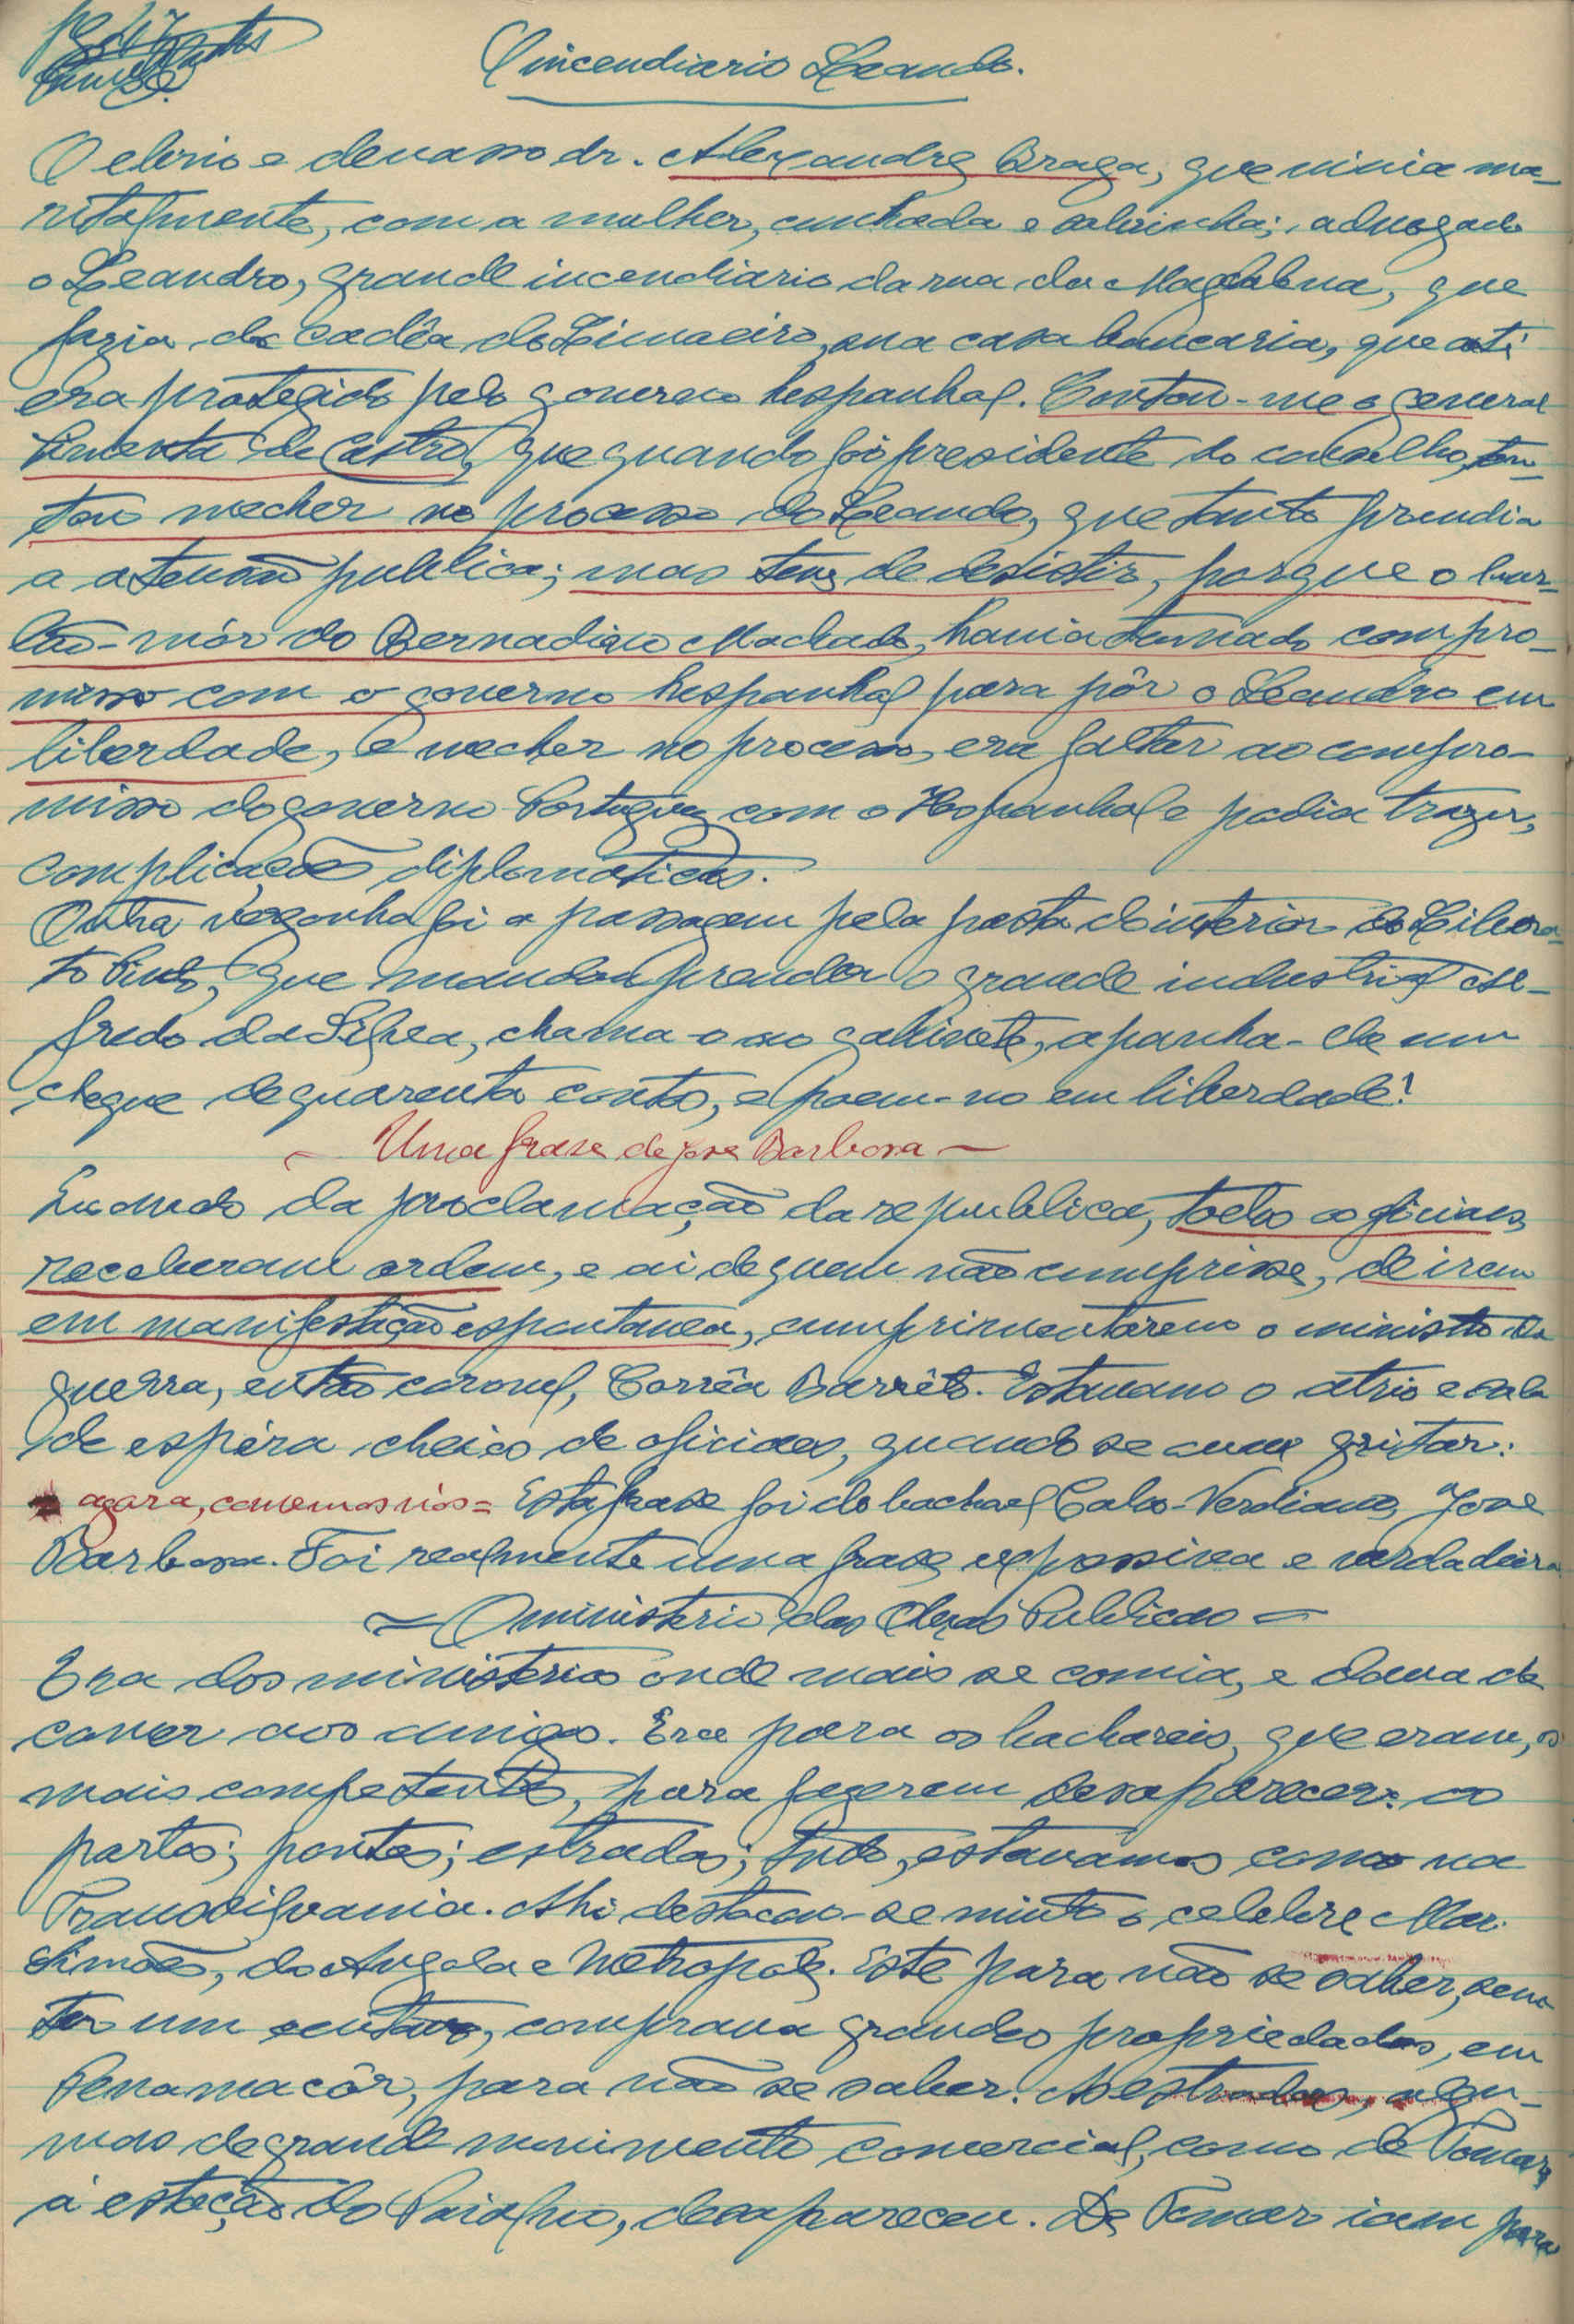 O incendiario Leandro.
O ebrio e devasso dr. Alexandre Braga, que vivia ma-
ritalmente, com a mulher, cunhada e sobrinha; advogado
o Leandro, grande incendiario da rua da Magdalena, que
fazia da cadêa do Limoeiro, sua casa bancaria, que até
era protegido pelo governo hespanhol. Contou-me o general
Pimenta de Castro, que quando foi presidente do conselho, ten-
tou mecher no processo do Leandro, que tanto prendia
a atenção publica; mas teve de desistir, porque o bur-
lão-mór do Bernadino Machado, havia tomado compro-
misso com o governo hespanhol para pôr o Leandro em
liberdade, e mecher no processo, era faltar ao compro-
misso do governo Portuguez com o Hespanhol e podia trazer,
complicações diplomaticas.
Outra vergonha foi a passagem pela pasta do interior do Libera-
to Pinto, que mandou prender o grande industrial Al-
fredo da Silva, chama-o ao gabinete, apanha-lhe um
cheque de quarenta contos, e poem-no em liberdade!
— Uma frase de José Barbosa —
Quando da proclamação da republica, todos os oficiaes,
receberam ordem, e ai de quem não cumprisse, de irem
em manifestação espontanea, cumprimentarem o ministro da
guerra, então coronel, Corrêa Barrêto. Estavam o atrio e sala
de espéra cheios de oficiaes, quando se ouve gritar:
= agora, comemos nós = Esta frase foi do bacharel Cabo-Verdiano, José
Barbosa. Foi realmente uma frase expessiva e verdadeira
= O ministerio das Obras Publicas =
Era dos ministerios onde mais se comia, e dava de
comer aos amigos. Era para os bachareis, que eram, os
mais competentes, para fazerem desaparecer: os
portos; pontes; estradas; tudo, estavamos como na
Transilvania. Ahi destacou-se muito o celebre Mar.
Simões, do Angola e Metropole. Este para não se saber, sem
ter um centavo, comprava grandes propriedades, em
Penamacôr, para não se saber. As estradas, algu-
mas de grande movimento comercial, como de Tomar,
á estação do Paialvo, desapareceu. De Tomar iam para